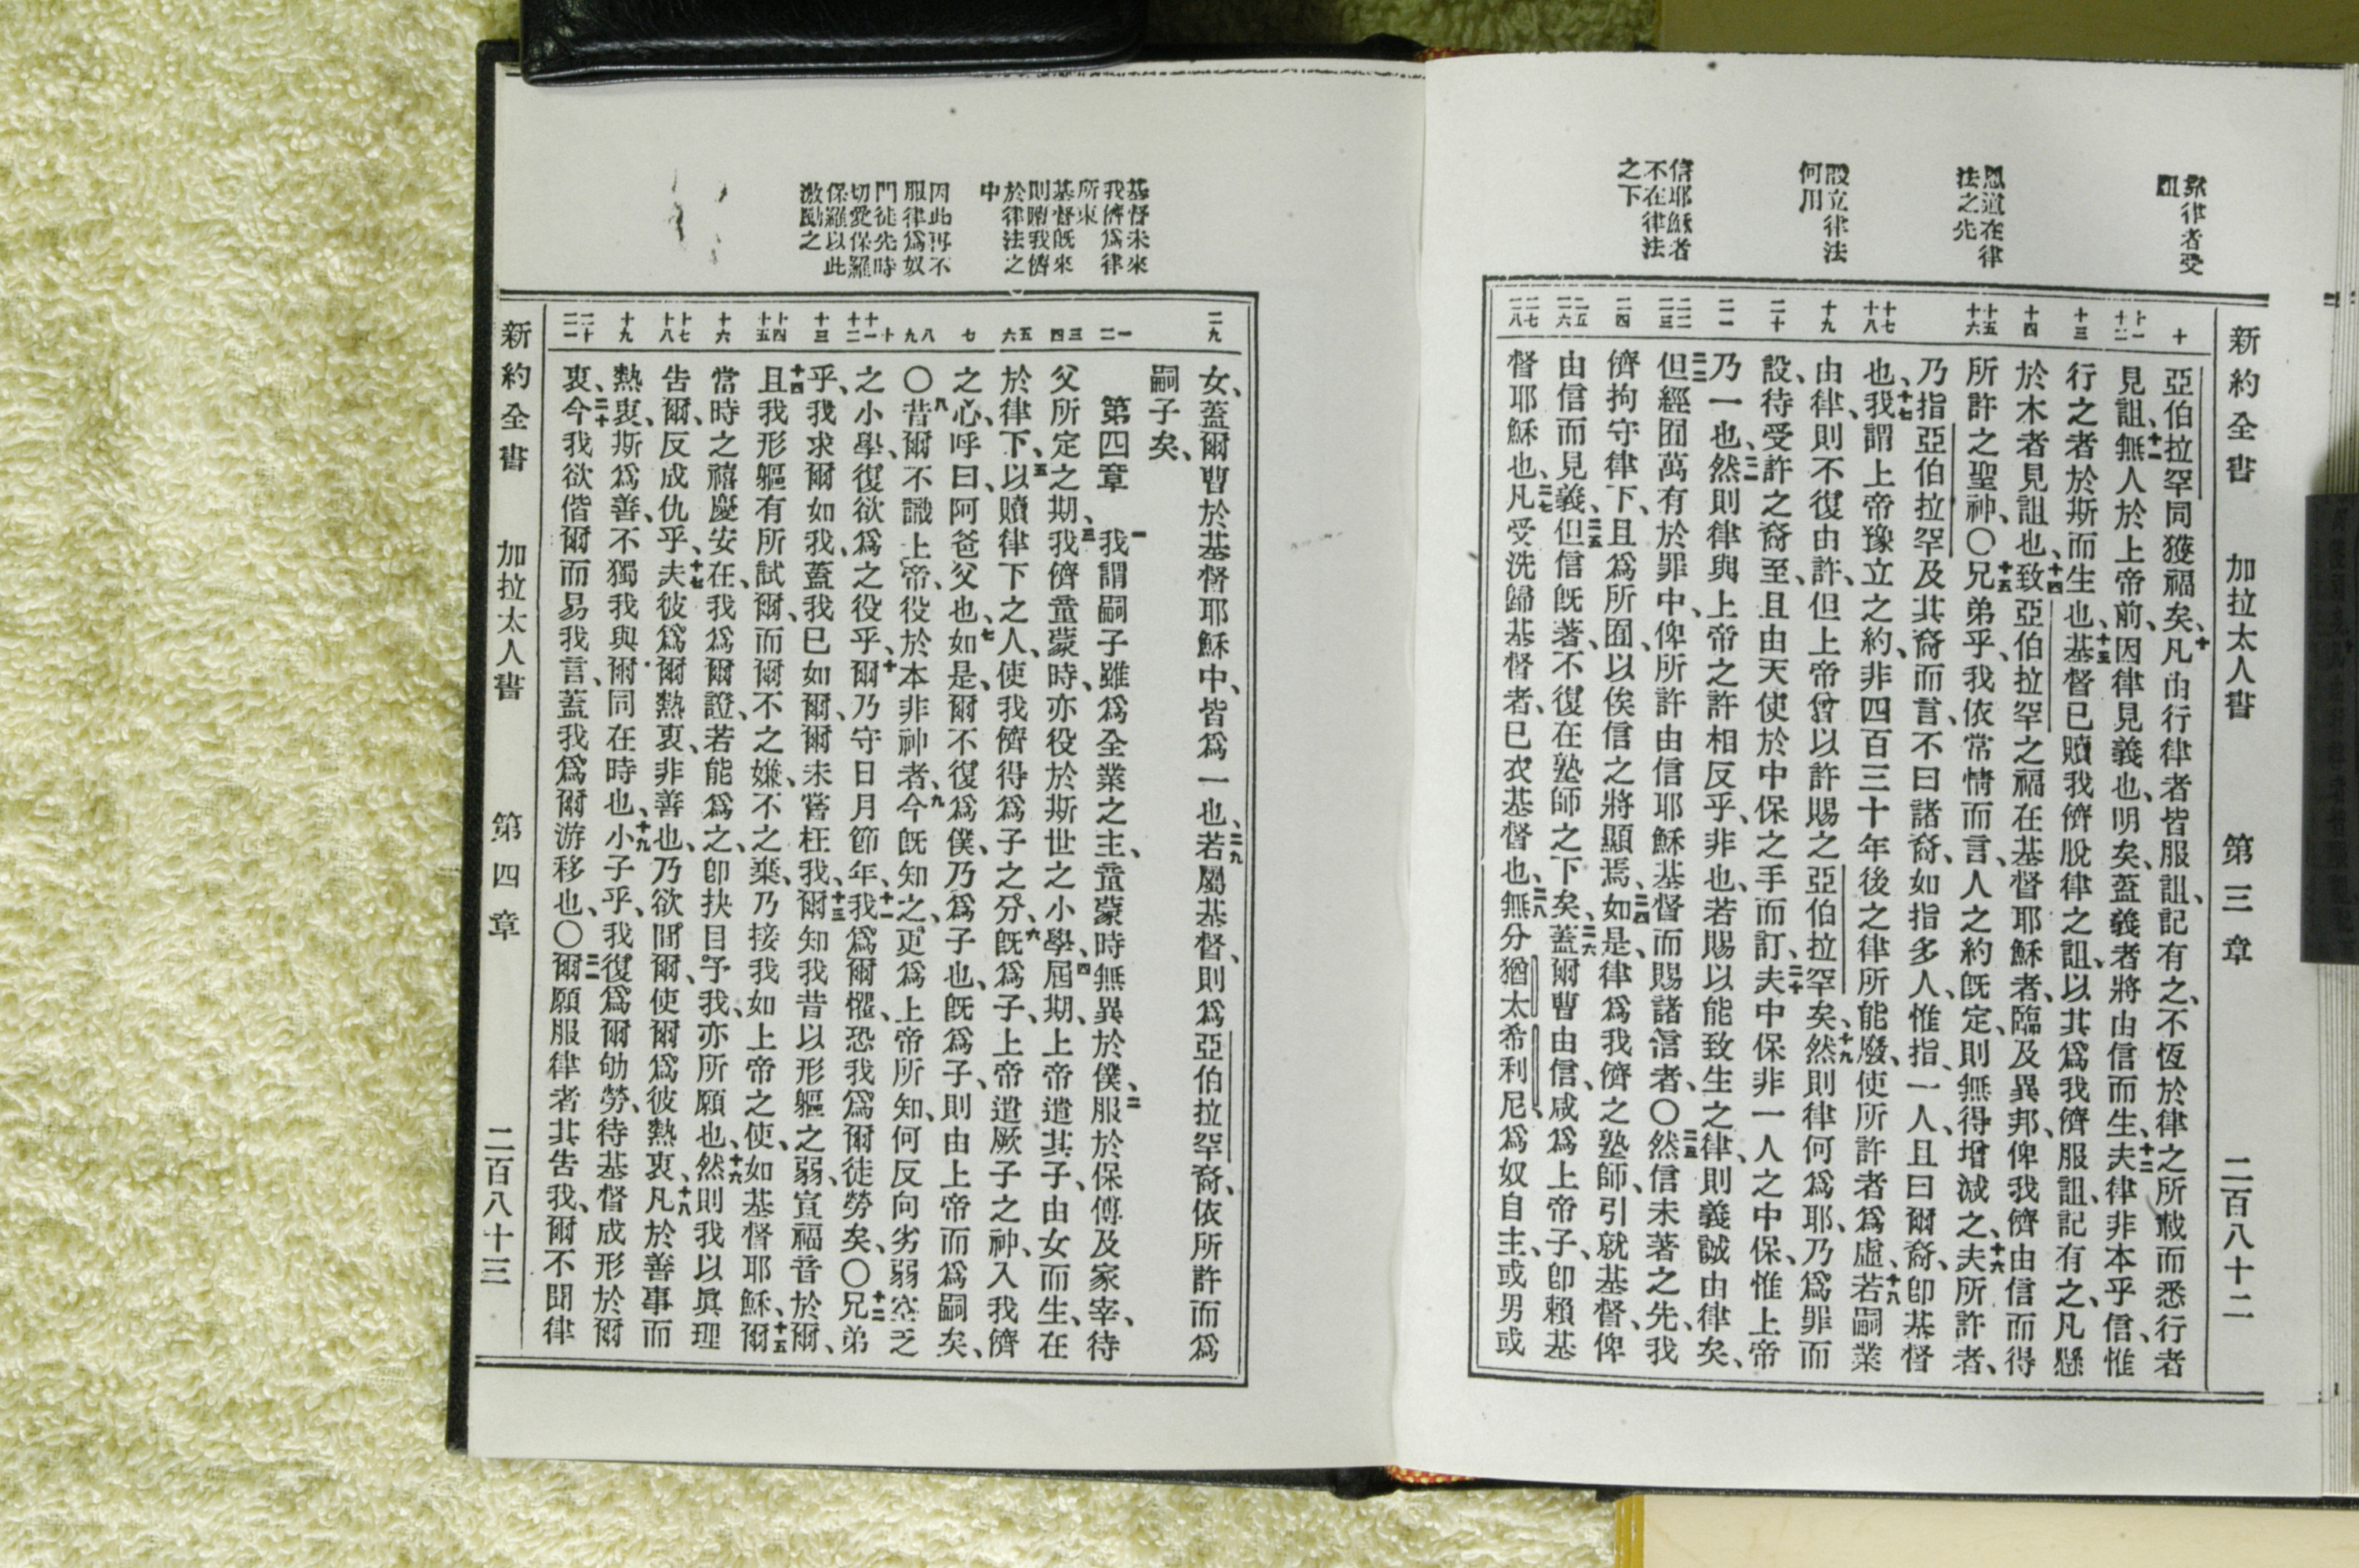 新約全書　加拉太人書　第三章　二百八十二
靠律者受
詛
恩道在律
法之先
設立律法
何用
信耶穌者
不在律法
之下
十
十一
十二
十三
十四
十五
十六
十七
十八
十九
二十
二一
二二
二三
二四
二五
二六
二七
二八
亞伯拉罕同獲福矣、十凡由行律者皆服詛、記有之、不恆於律之所載而悉行者
見詛、十一無人於上帝前、因律見義也、明矣、蓋義者將由信而生、十二夫律非本乎信、惟
行之者於斯而生也、十三基督已贖我儕脫律之詛、以其爲我儕服詛、記有之、凡懸
於木者見詛也、十四致亞伯拉罕之福在基督耶穌者、臨及異邦、俾我儕由信而得
所許之聖神、〇十五兄弟乎、我依常情而言、人之約旣定、則無得增減之、十六夫所許者、
乃指亞伯拉罕及其裔而言、不曰諸裔、如指多人、惟指一人、且曰爾裔、卽基督
也、十七我謂上帝豫立之約、非四百三十年後之律所能廢、使所許者爲虛、十八若嗣業
由律、則不復由許、但上帝曾以許賜之亞伯拉罕矣、十九然則律何爲耶、乃爲罪而
設、待受許之裔至、且由天使於中保之手而訂、二十夫中保非一人之中保、惟上帝
乃一也、二一然則律與上帝之許相反乎、非也、若賜以能致生之律、則義誠由律矣、
二二但經囿萬有於罪中、俾所許由信耶穌基督而賜諸信者、〇二三然信未著之先、我
儕拘守律下、且爲所囿、以俟信之將顯焉、二四如是、律爲我儕之塾師、引就基督、俾
由信而見義、二五但信旣著、不復在塾師之下矣、二六蓋爾曹由信、咸爲上帝子、卽賴基
督耶穌也、二七凡受洗歸基督者、已衣基督也、二八無分猶太希利尼、爲奴自主、或男或
基督未來
我儕爲律
所束
基督旣來
則贖我儕
於律法之
中
因此再不
服律爲奴
門徒先時
切愛保羅
保羅以此
激勵之
二九
一
二
三
四
五
六
七
八
九
十
十一
十二
十三
十四
十五
十六
十七
十八
十九
二十
二一
女、蓋爾曹於基督耶穌中、皆爲一也、二九若屬基督、則爲亞伯拉罕裔、依所許而爲
嗣子矣、
第四章　一我謂嗣子雖爲全業之主、童蒙時無異於僕、二服於保傅及家宰、待
父所定之期、三我儕童蒙時、亦役於斯世之小學、四屆期、上帝遣其子、由女而生、在
於律下、五以贖律下之人、使我儕得爲子之分、六旣爲子、上帝遣厥子之神、入我儕
之心、呼曰、阿爸父也、七如是、爾不復爲僕、乃爲子也、旣爲子、則由上帝而爲嗣矣、
〇八昔爾不識上帝、役於本非神者、九今旣知之、更爲上帝所知、何反向劣弱空乏
之小學、復欲爲之役乎、十爾乃守日月節年、十一我爲爾懼、恐我爲爾徒勞矣、〇十二兄弟
乎、我求爾如我、蓋我已如爾、爾未嘗枉我、十三爾知我昔以形軀之弱、宣福音於爾、
十四且我形軀有所試爾、而爾不之嫌、不之棄、乃接我如上帝之使、如基督耶穌、十五爾
當時之禧慶安在、我爲爾證、若能爲之、卽抉目予我、亦所願也、十六然則我以眞理
告爾、反成仇乎、十七夫彼爲爾熱衷、非善也、乃欲間爾、使爾爲彼熱衷、十八凡於善事而
熱衷、斯爲善、不獨我與爾同在時也、十九小子乎、我復爲爾劬勞、待基督成形於爾
衷、二十今我欲偕爾而易我言、蓋我爲爾游移也、〇二一爾願服律者其告我、爾不聞律
新約全書　加拉太人書　第四章　二百八十三